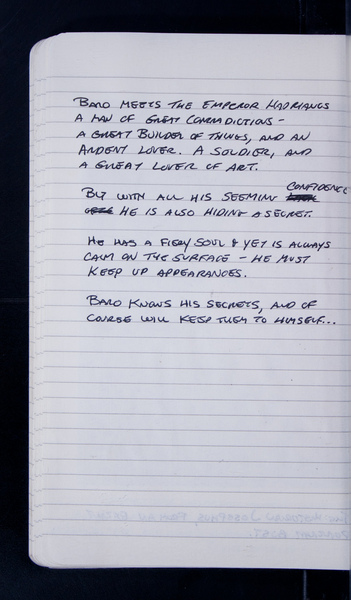 BARD MEETS THE EMPEROR HADRIANUS
A MAN OF GREAT CONTRADICTIONS -
A GREAT BUILDER OF THINGS, AND AN
ARDENT LOVER. A SOLDIER, AND
A GREAT LOVER OF ART.
CONFIDENCE
BUT WITH ALL HIS SEEMING
HE IS ALSO HIDING A SECRET.
HE HAS A FIERY SOUL & YET IS ALWAYS
CALM ON THE SURFACE - HE MUST
KEEP UP APPEARANCES.
BARD KNOWS HIS SECRETS, AND OF
COURSE WILL KEEP THEM TO HIMSELF...